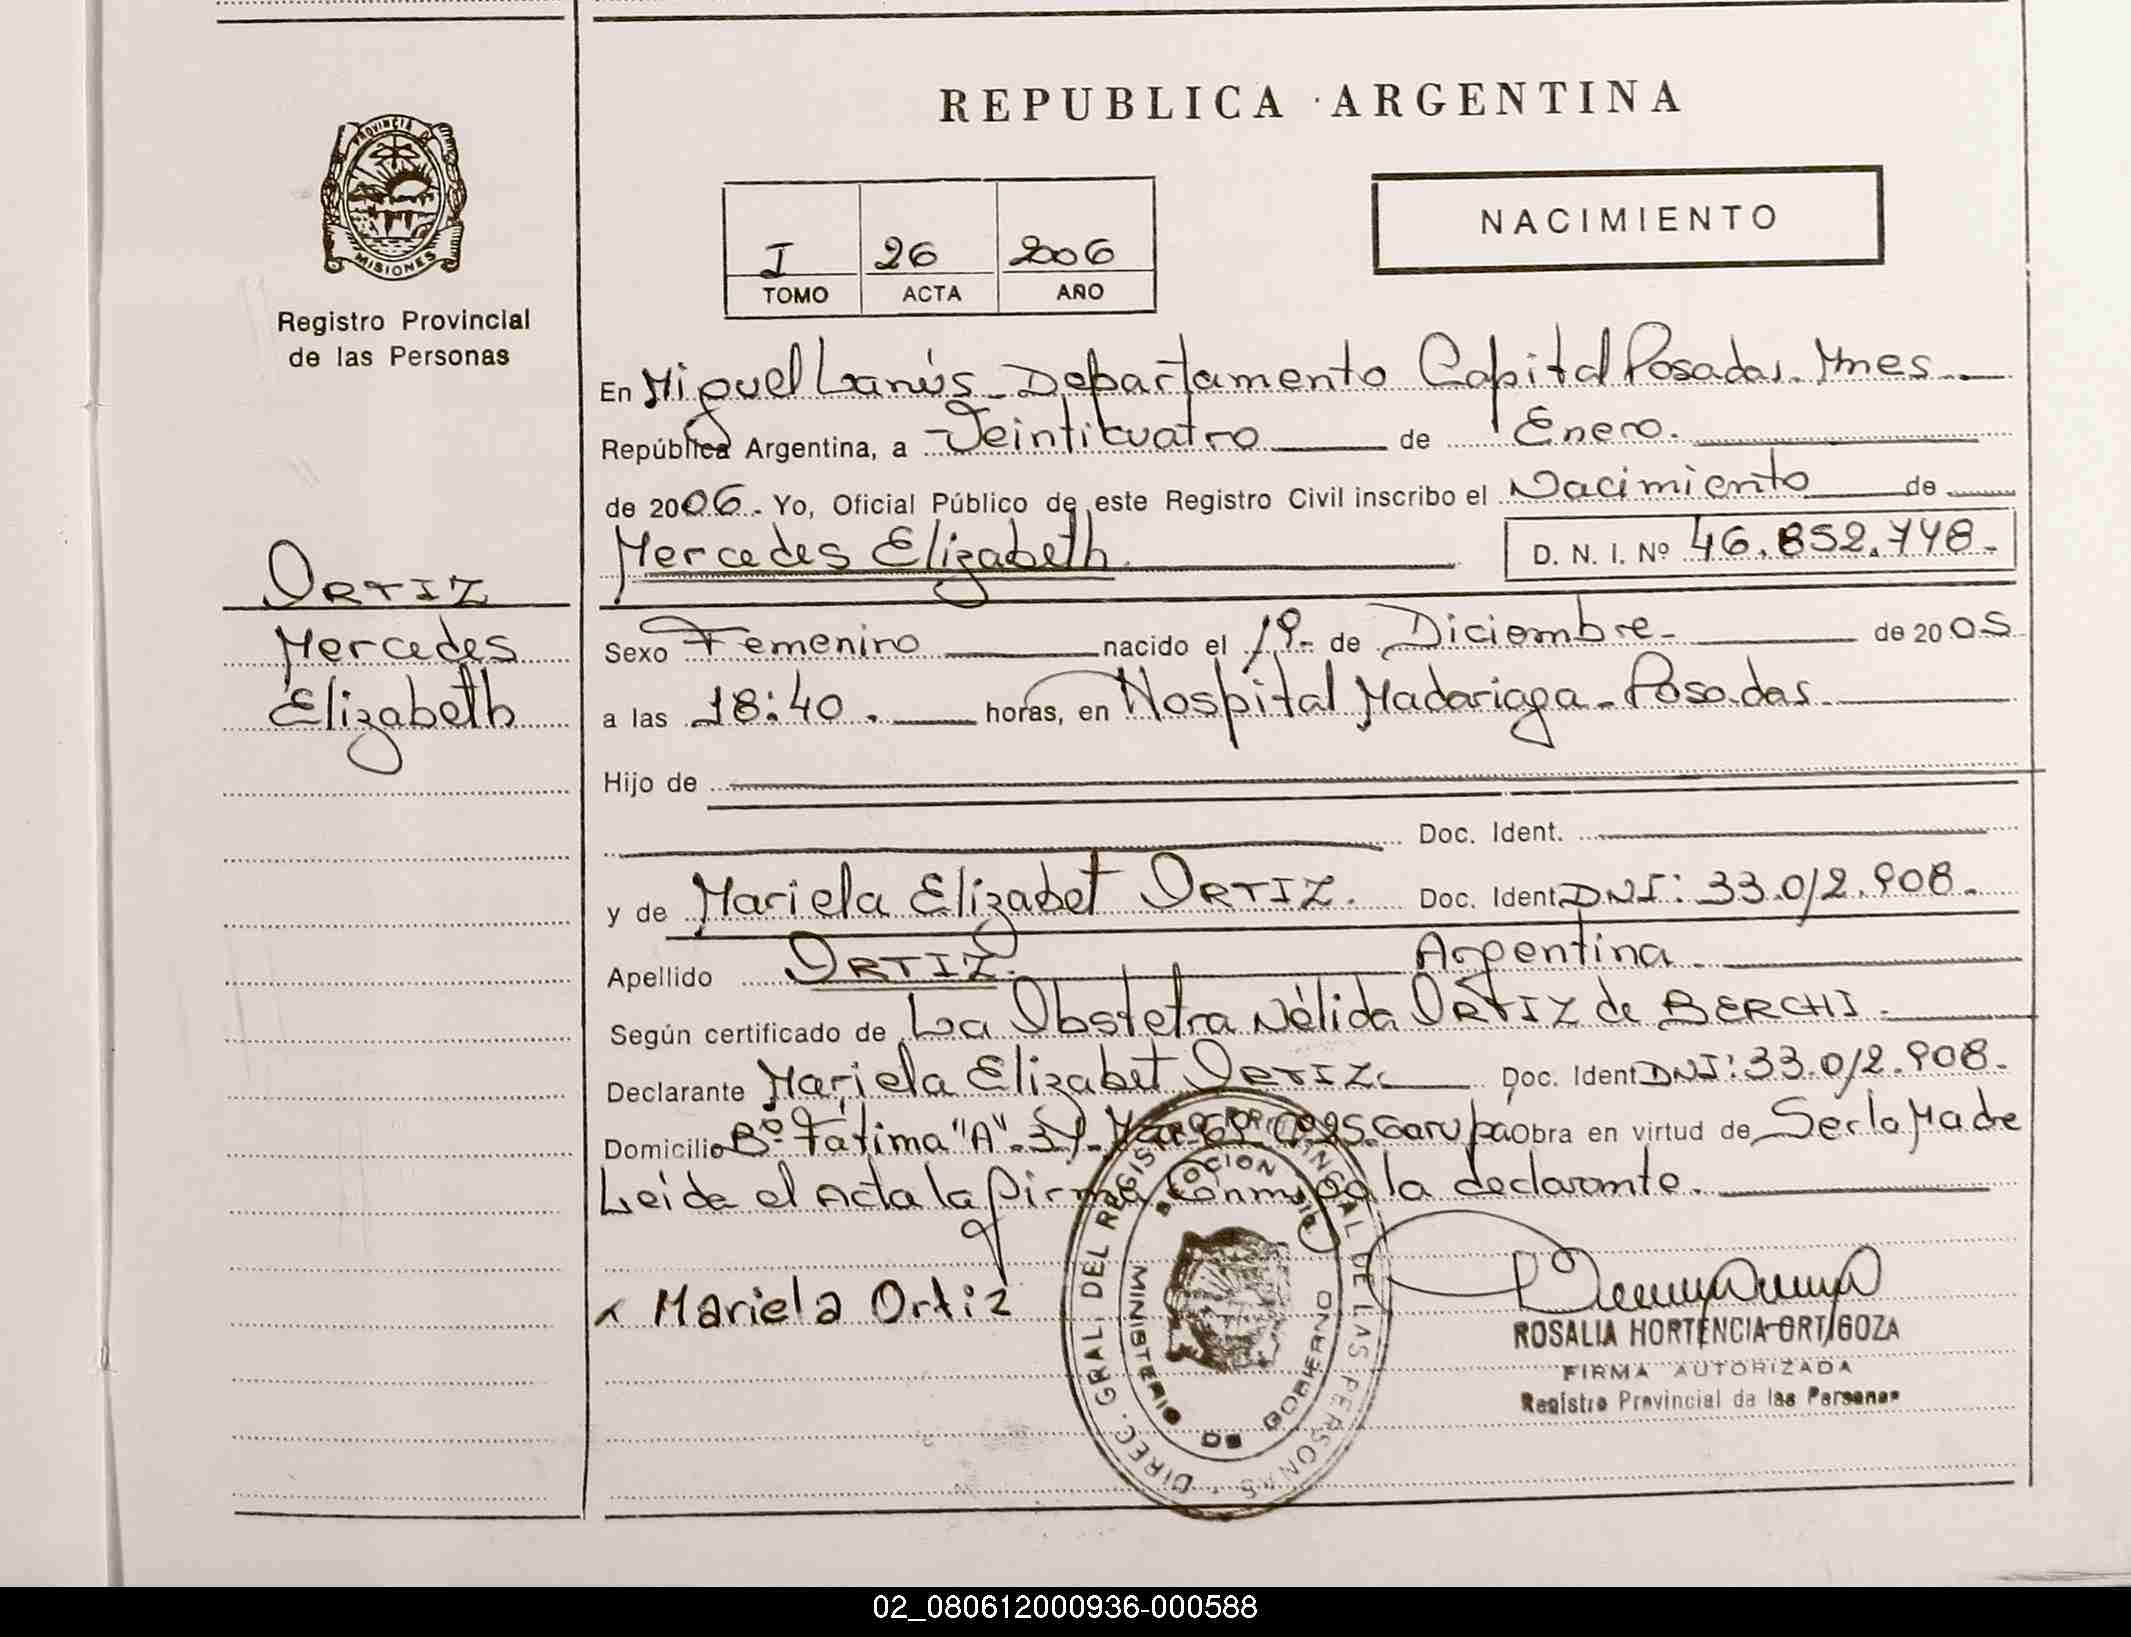 REPUBLICA ARGENTINA
PROVINCIA DE MISIONES
Registro Provincial
de las Personas
NACIMIENTO
I 26 2006
TOMO ACTA AÑO
En Miguel Lanús - Departamento Capital Posadas - Mnes
República Argentina, a Veinticuatro de Enero.
de 2006. Yo, Oficial Público de este Registro Civil inscribo el Nacimiento de
Mercedes Elizabeth D. N. I. Nº 46.852.748.-
ORTIZ
Mercedes
Elizabeth
Sexo Femenino nacido el 19- de Diciembre- de 2005
a las 18:40. horas, en Hospital Madariaga - Posadas
Hijo de
Doc. Ident.
y de Mariela Elizabet ORTIZ. Doc. Ident DNI: 33.012.908.-
Apellido ORTIZ. Argentina
Según certificado de La Obstetra Nélida ORTIZ de BERCHI.
Declarante Mariela Elizabet ORTIZ. Doc. Ident DNI: 33.012.908.-
Domicilio Bº Fátima "A" Garupá obra en virtud de Ser la Madre
Leida el Acta la firma Conmigo la declarante.
x Mariela Ortiz
DIREC. GRAL. DEL REGISTRO PROVINCIAL DE LAS PERSONAS
MINISTERIO DE GOBIERNO
ROSALIA HORTENCIA ORTIGOZA
FIRMA AUTORIZADA
Registro Provincial de las Personas
02_080612000936-000588